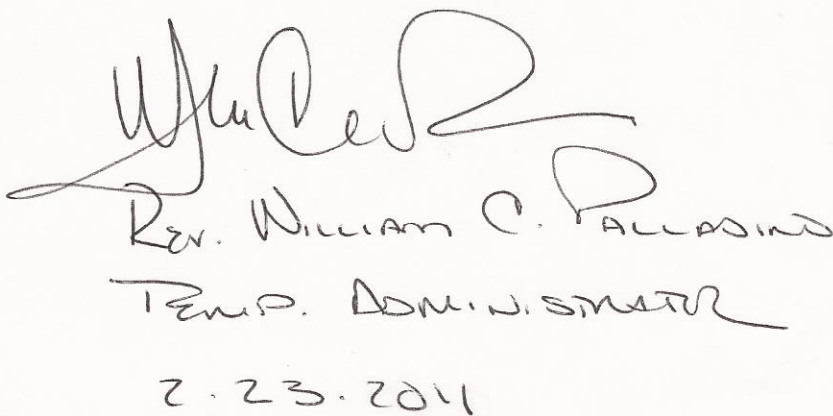 Rev. William C. Palladino
Temp. Administrator
2.23.2011